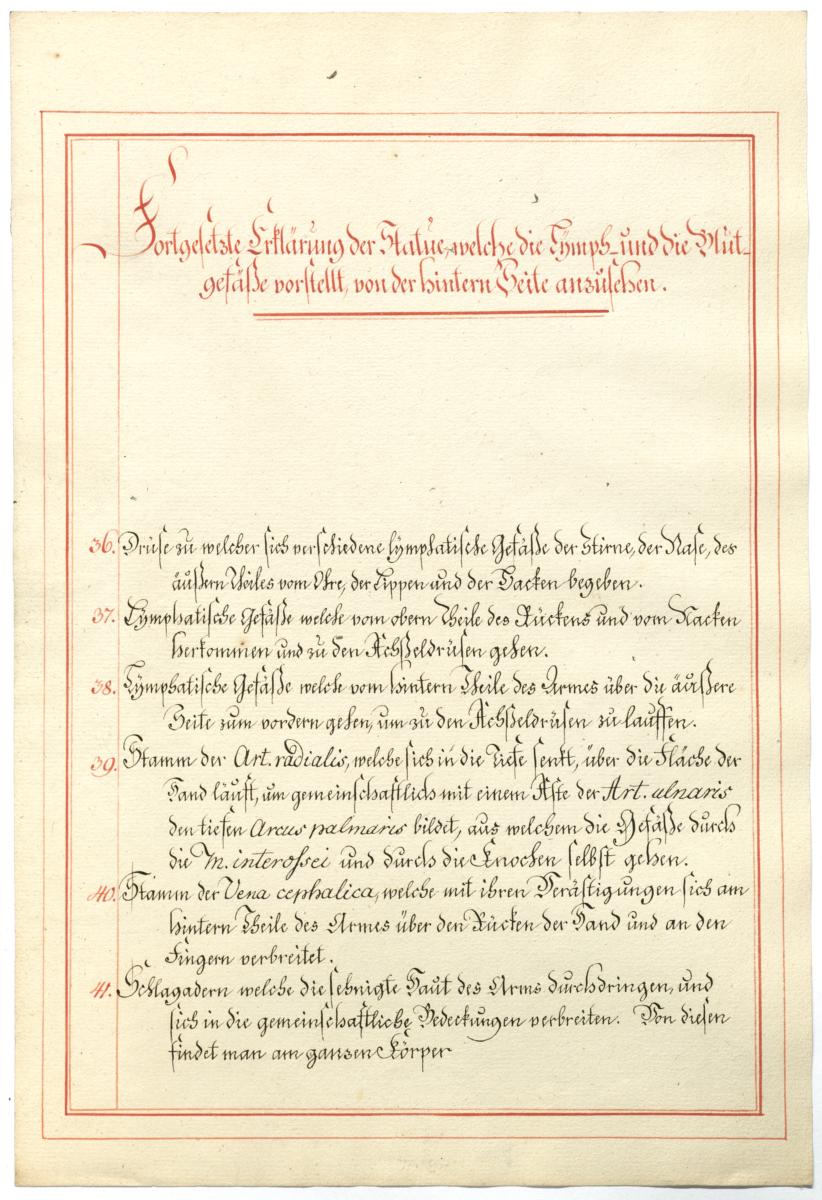 Fortgesetzte Erklärung der Statue, welche die Lymph- und die Blut-
gefäße vorstellt, von der hintern Seite anzusehen.
36. Drüse zu welcher sich verschiedene lymphatische Gefäße der Stirne, der Nase, des
äußern Theiles vom Ohre, der Lippen und der Backen begeben.
37. Lymphatische Gefäße welche vom obern Theile des Rückens und vom Nacken
herkommen und zu den Achßeldrüsen gehen.
38. Lymphatische Gefäße welche vom hintern Theile des Armes über die äußere
Seite zum vordern gehen, um zu den Achßeldrüsen zu lauffen.
39. Stamm der Art. radialis, welche sich in die Tiefe senkt, über die Fläche der
Hand läuft, um gemeinschaftlich mit einem Aste der Art. ulnaris
den tiefen Arcus palmaris bildet, aus welchem die Gefäße durch
die M. interossei und durch die Knochen selbst gehen.
40. Stamm der Vena cephalica, welche mit ihren Verästigungen sich am
hintern Theile des Armes über den Rücken der Hand und an den
Fingern verbreitet.
41. Schlagadern welche die sehnigte Haut des Arms durchdringen, und
sich in die gemeinschaftliche Bedeckungen verbreiten. Von diesen
findet man am ganzen Körper